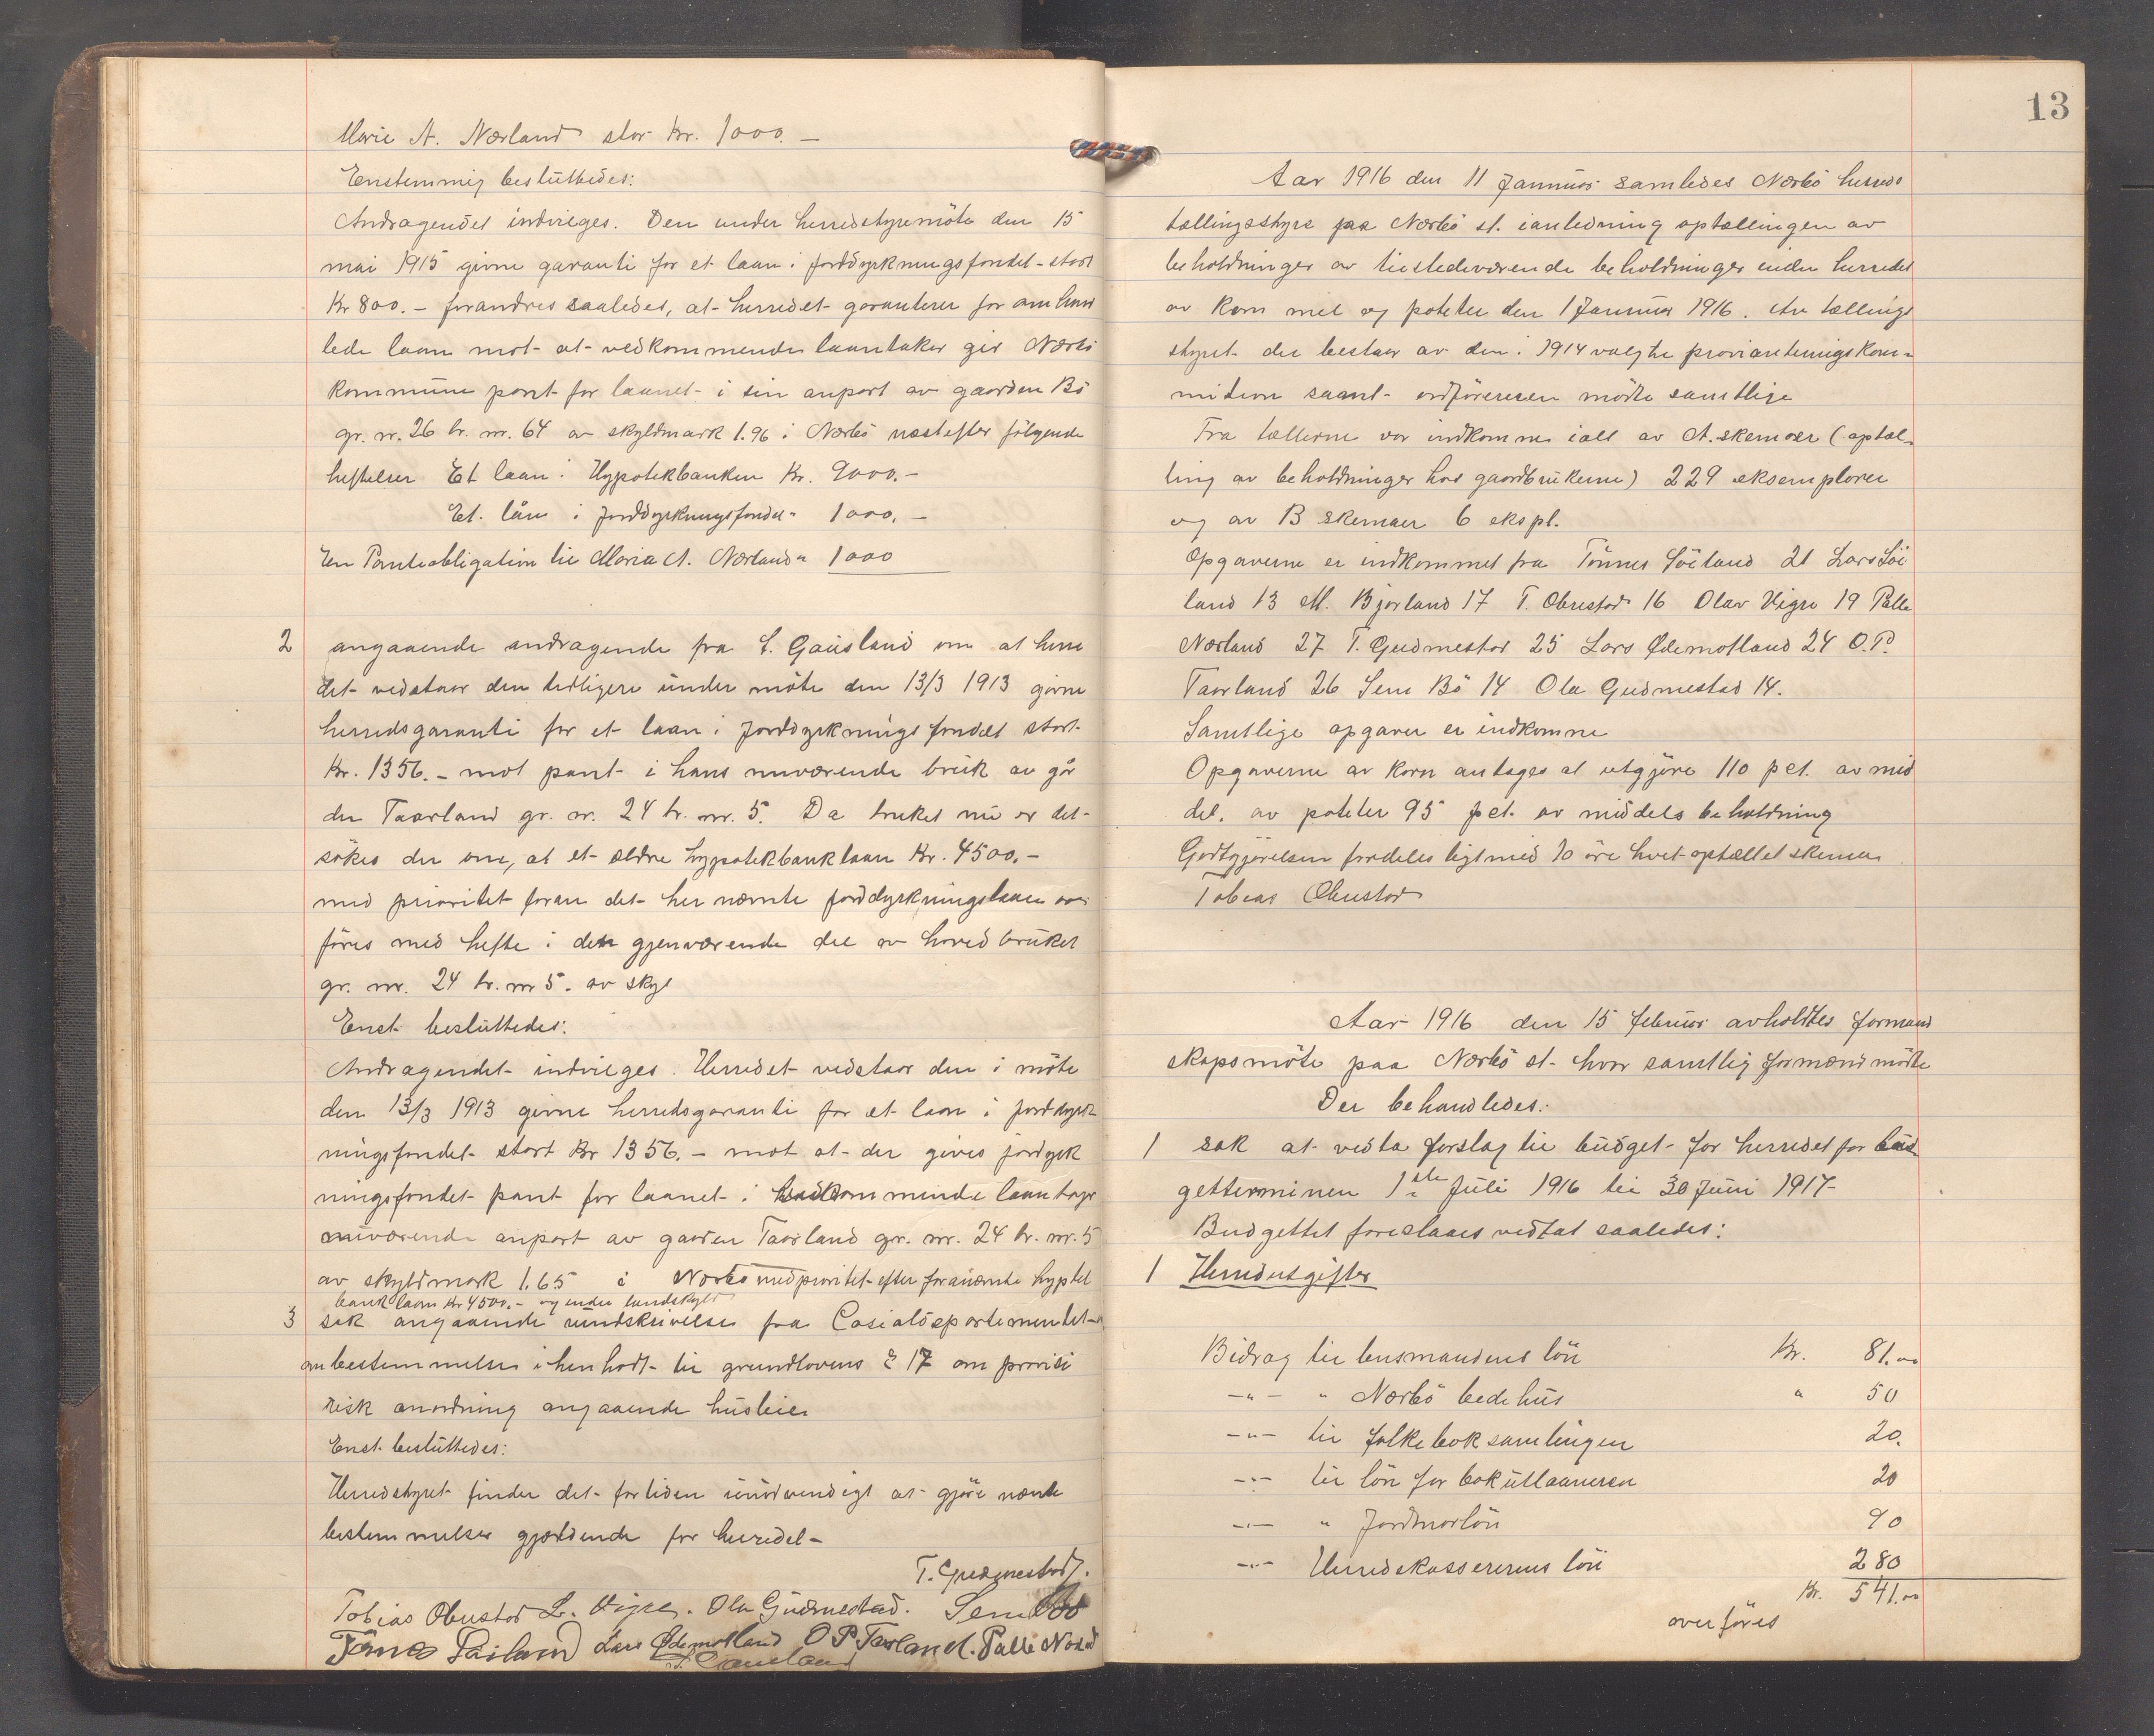 Marie A. Nærland stor kr. 1000.–
Enstemmig besluttedes:
Andragendet indvilges. Den under herredstyremöte den 15
mai 1915 givne garanti for et laan i jorddyrkningsfondet – stort
Kr 800.– forandres saaledes, at herredet garanterer for omhand
lede laan mot at vedkommende laantaker gir Nærbö
kommune pant for laanet i sin anpart av gaarden Bö
gr. nr. 26 br. nr. 64 av skyldmark 1.96 i Nærbö næstefter fölgende
heftelser Et laan i Hypotekbanken Kr. 9000.–
Et lån i jorddyrkningsfondet " 1000.–
En Panteobligation til Maria A. Nærland " 1000
2 angaaende andragende fra E. Gausland om at herre
det vedstaar den tidligere under möte den 13/3 1913 givne
herredsgaranti for et laan i jorddyrkningsfondet stort
Kr. 1356.– mot pant i hans nuværende bruk av går
den Taarland gr. nr. 24 br. nr. 5. Da bruket nu er det
sökes der om, at et ældre hypotekbanklaan Kr. 4500.–
med prioritet foran det her nævnte jorddyrkningslaan over
föres med hefte i den gjenværende del av hovedbruket
gr. nr. 24 br. nr 5. av skyl
Enst besluttedes:
Andragendet indvilges. Herredet vedstaar den i möte
den 13/3 1913 givne herredsgaranti for et laan i jorddyrk
ningsfondet stort Kr 1356.– mot at der gives jordyrk
ningsfondet pant for laanet i vedkommende laantager
nuværende anpart av gaarden Taarland gr. nr. 24 br. nr. 5
av skyldmark 1.65 i Nærbö med prioritet efter forannævnte hypotek
banklaan Kr 4500.– og under landskyld
3 sak angaaende rundskrivelse fra Socialdepartementet
om bestemmelser i henhold til grundlovens § 17 om provisi
risk anordning angaaende husleie
Enst. besluttedes:
Herredstyret finder det for tiden unödvendigt at gjöre nævnte
bestemmelser gjældende for herredet –
T. Gudmestad.
Tobias Obrestad L. Vigre. Ola Gudmestad. Sem Bö
Tönnes Söiland Lars Ødemotland O P Taarland. Palle Nærland
E. Gausland
13
Aar 1916 den 11 Januar samledes Nærbö herreds
tællingsstyre paa Nærbö st. i anledning optællingen av
beholdninger av tilstedeværende beholdninger inden herredet
av korn mel og poteter den 1 Januar 1916. Av tællings
styret der bestaar av den i 1914 valgte provianteringskom-
mitteen samt ordföreren mötte samtlige
Fra tællerne var indkommet ialt av A. skemaer (optæl-
ling av beholdninger hos gaardbrukerne) 229 eksemplarer
og av B skemaer 6 ekspl.
Opgaverne er indkommet fra Tönnes Söiland 21 Lars Söi
land 13 M. Bjorland 17 T. Obrestad 16 Olav Vigre 19 Palle
Nærland 27 T. Gudmestad 25 Lars Ødemotland 24 O.P.
Taarland 26 Sem Bö 14 Ola Gudmestad 14.
Samtlige opgaver er indkomne
Opgaverne av korn antages at utgjöre 110 pct. av mid
del. av poteter 95 pct. av middels beholdning
Godtgjörelsen fordeles ligt med 10 öre hvert optællet skema
Tobias Obrestad
Aar 1916 den 15 februar avholdtes formand
skapsmöte paa Nærbö st. hvor samtlig formænd mötte
Der behandledes:
1 sak at vedta forslag til budget for herredet for bud
getterminen 1ste Juli 1916 til 30 Juni 1917
Budgettet foreslaaes vedtat saaledes:
1 Herredsutgifter
Bidrag til lensmandens lön Kr. 81.00
–"– " Nærbö bedehus " 50
–"– til folkeboksamlingen 20.
–"– til lön for bokutlaaneren 20
–"– " Jordmorlön 90
–"– Herredskassererens lön 280
Kr. 541.00
overföres